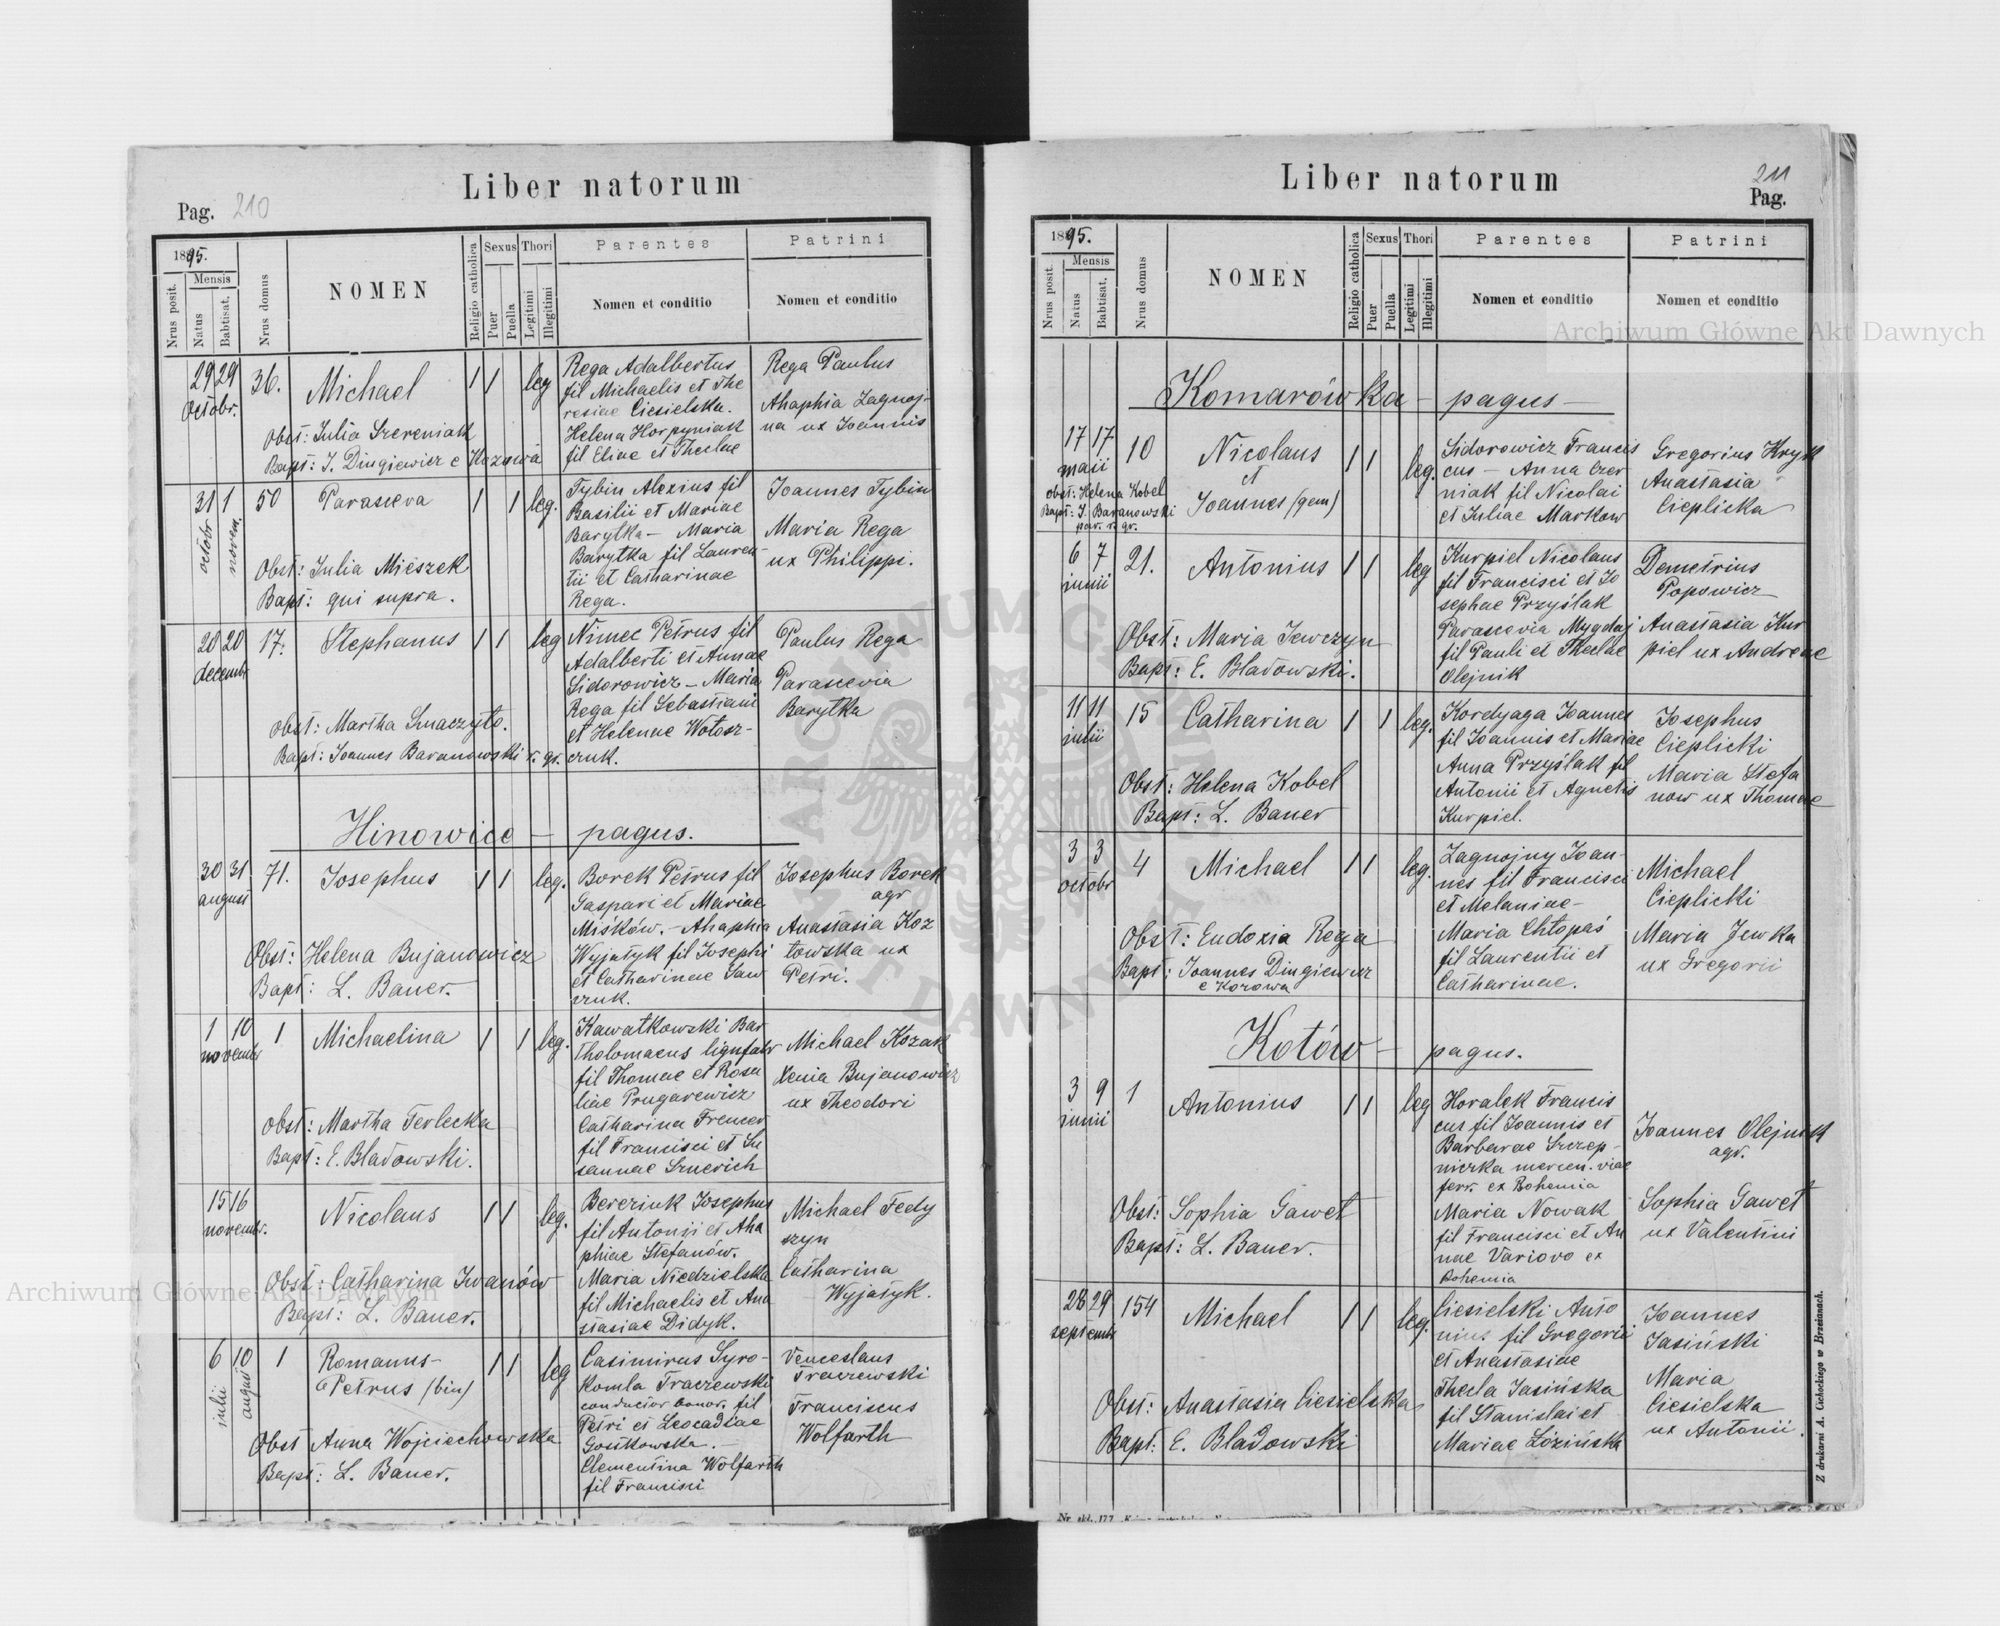 Liber natorum
Pag. 210
1895.
Nrus posit.
Mensis
Natus
Babtisat.
Nrus domus
NOMEN
Religio catholica
Sexus
Puer
Puella
Thori
Legitimi
Illegitimi
Parentes
Nomen et conditio
Patrini
Nomen et conditio
29 29 octobr. 36. Michael 1 1 leg
Obst: Julia Szereniak
Bapt: J. Dingiewicz e Kozowa
Rega Adalbertus
fil Michaelis et The
resiae Ciesielska.
Helena Horpyniak
fil Eliae et Theclae
Rega Paulus
Ahaphia Zagnoj-
na ux Joannis
31 octobr 1 novem. 50 Parasceva 1 1 leg.
Obst: Julia Mieszek
Bapt: qui supra.
Tybin Alexius fil
Basilii et Mariae
Barytka - Maria
Barytka fil Lauren-
tii et Catharinae
Rega.
Joannes Tybin
Maria Rega
ux Philippi.
20 20 decembr 17. Stephanus 1 1 leg
Obst: Martha Smaczyto.
Bapt: Joannes Baranowski r. gr.
Nimec Petrus fil
Adalberti et Annae
Sidorowicz - Maria
Rega fil Sebastiani
et Helenae Wołosz-
czuk.
Paulus Rega
Parascevia
Barytka
Hinowice - pagus.
30 31 august 71. Josephus 1 1 leg.
Obst: Helena Bujanowicz
Bapt: L. Bauer.
Borek Petrus fil
Gaspari et Mariae
Miśków. - Ahaphia
Wyjatyk fil Josephi
et Catharinae Saw
czuk.
Josephus Borek
agr
Anastasia Koz
łowska ux
Petri.
1 10 novembr 1 Michaelina 1 1 leg.
Obst: Martha Terlecka
Bapt: E. Bladowski.
Kawałkowski Bar-
tholomaeus lignfabr
fil Thomae et Rosa
liae Prugarewicz
Catharina Frencer
fil Francisci et Su
sannae Sznerich
Michael Kozak
Xenia Bujanowicz
ux Theodori
15 16 novembr. Nicolaus 1 1 leg.
Obst: Catharina Iwanów
Bapt: L. Bauer.
Bereziuk Josephus
fil Antonii et Aha
phiae Stefanów.
Maria Niedzielska
fil Michaelis et Ana
stasiae Didyk.
Michael Fedy
szyn
Catharina
Wyjatyk.
6 julii 10 august 1 Romanus-
Petrus (bin) 1 1 leg
Obst Anna Wojciechowska
Bapt: L. Bauer.
Casimirus Syro-
komla Traczewski
conductor bonor. fil
Petri et Leocadiae
Gosikowska. -
Clementina Wolfarth
fil Francisci
Venceslaus
Traczewski
Franciscus
Wolfarth
Liber natorum
211
Pag.
1895.
Nrus posit.
Mensis
Natus
Babtisat.
Nrus domus
NOMEN
Religio catholica
Sexus
Puer
Puella
Thori
Legitimi
Illegitimi
Parentes
Nomen et conditio
Patrini
Nomen et conditio
Komarówka - pagus -
17 17 maii 10 Nicolaus
et
Joannes (gem) 1 1 leg.
Obst: Helena Kobel
Bapt: J. Baranowski
par. r. gr.
Sidorowicz Francis
cus - Anna Czer
niak fil Nicolai
et Juliae Markow
Gregorius Kryk
Anastasia
Cieplicka
6 7 junii 21. Antonius 1 1 leg
Obst: Maria Jewczyn
Bapt: E. Bladowski.
Kurpiel Nicolaus
fil Francisci et Jo
sephae Przyślak
Parascevia Mygdaj
fil Pauli et Theclae
Olejnik
Demetrius
Popowicz
Anastasia Kur
piel ux Andreae
11 11 julii 15 Catharina 1 1 leg.
Obst: Helena Kobel
Bapt: L. Bauer
Kordyaga Joannes
fil Joannis et Mariae
Anna Przyślak fil
Antonii et Agnetis
Kurpiel.
Josephus
Cieplicki
Maria Stefa
now ux Thomae
3 3 octobr 4 Michael 1 1 leg.
Obst: Eudoxia Rega
Bapt: Joannes Dingiewicz
e Kozowa
Zagnojny Joan-
nes fil Francisci
et Melaniae -
Maria Chłopaś
fil Laurentii et
Catharinae.
Michael
Cieplicki
Maria Jewka
ux Gregorii
Kotów - pagus.
3 9 junii 1 Antonius 1 1 leg
Obst: Sophia Gaweł
Bapt: L. Bauer.
Horalek Francis
cus fil Joannis et
Barbarae Szczep-
niczka mercen. viae
ferr. ex Bohemia
Maria Nowak
fil Francisci et An
nae Variovo ex
Bohemia
Joannes Olejnik
agr.
Sophia Gaweł
ux Valentini
28 29 septembr 154 Michael 1 1 leg.
Obst: Anastasia Ciesielska
Bapt: E. Bladowski
Ciesielski Anto
nius fil Gregorii
et Anastasiae
Thecla Jasińska
fil Stanislai et
Mariae Łozińska
Joannes
Jasiński
Maria
Ciesielska
ux Antonii.
Z drukarni A. Cichockiego w Brzeżanach.
Archiwum Główne Akt Dawnych
Archiwum Główne Akt Dawnych
ARCHIWUM GŁÓWNE AKT DAWNYCH